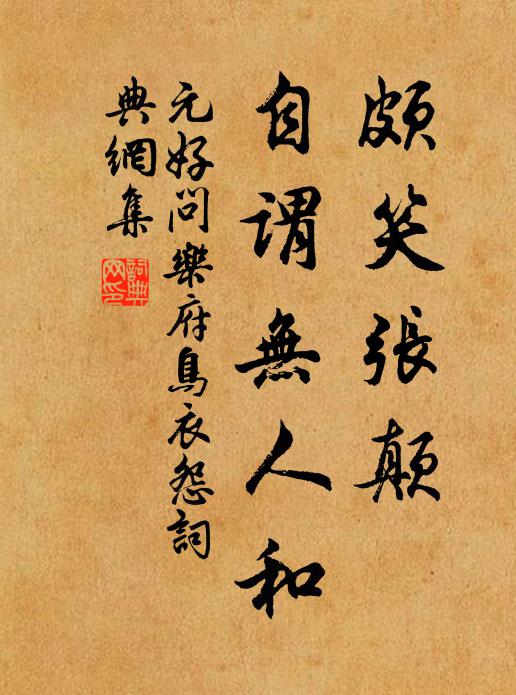 頗笑張顛
自謂無人和
元好問樂府烏衣怨詞
典網集
詞典
网印